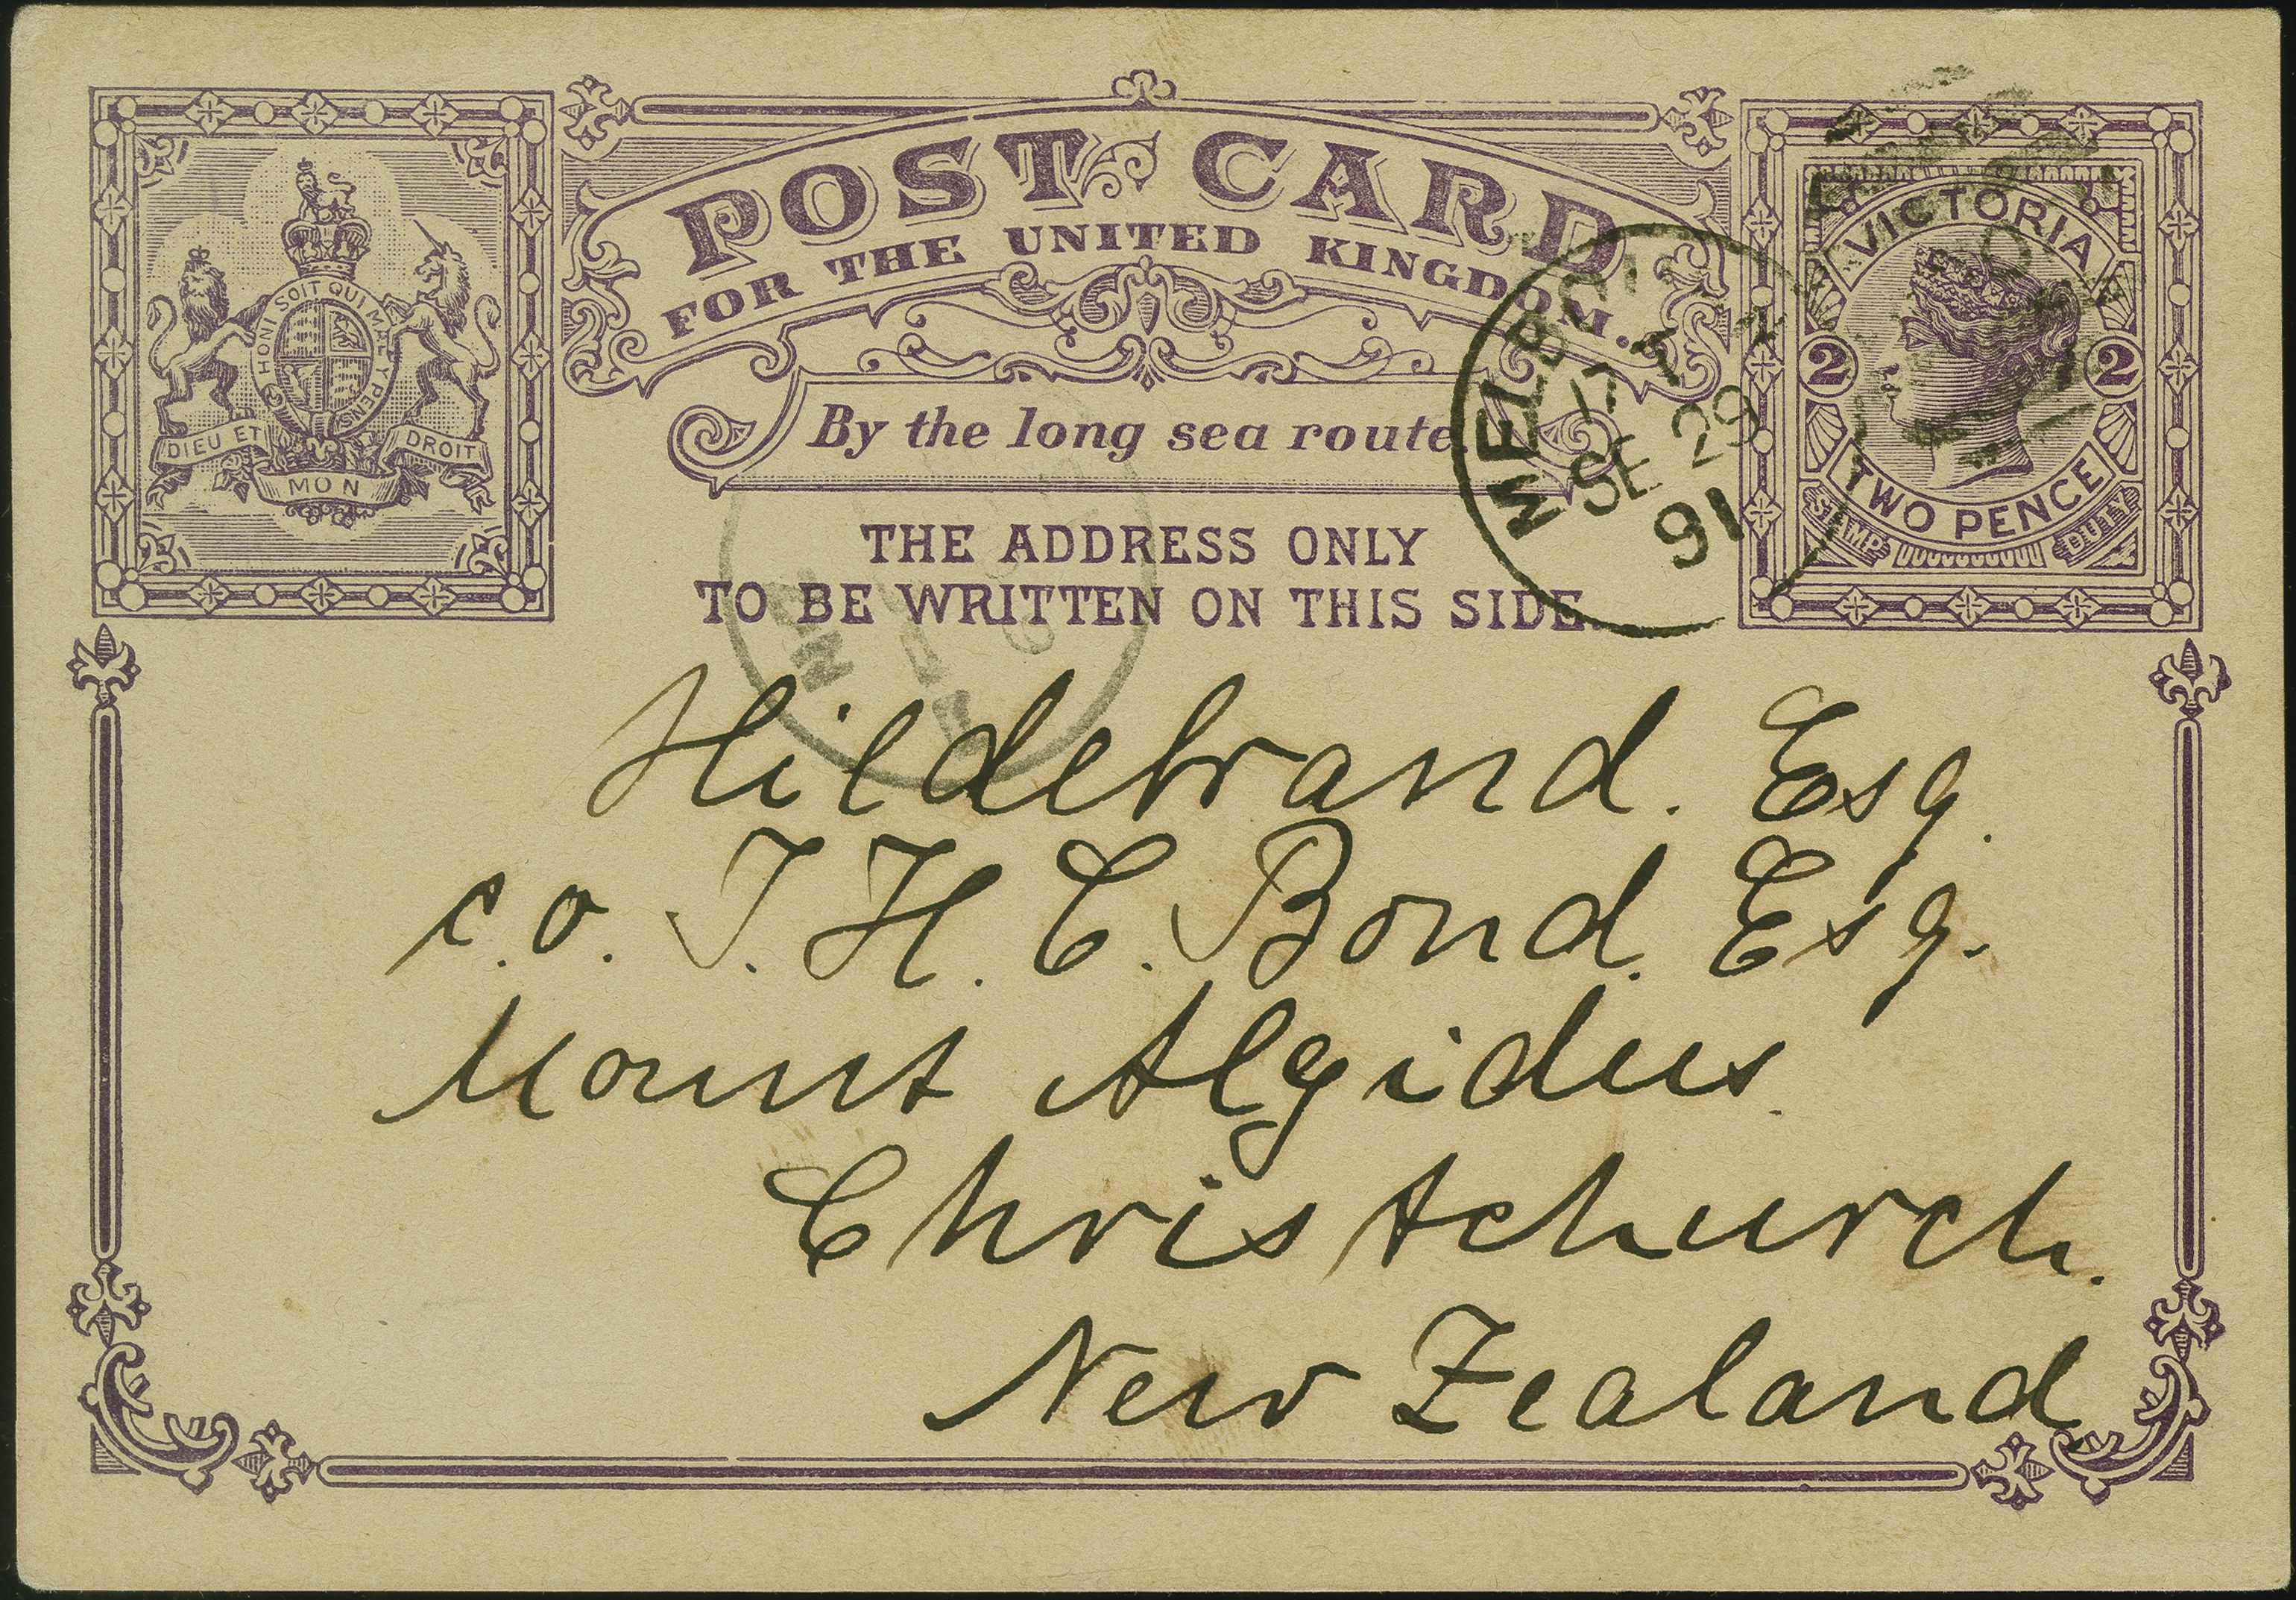 POST CARD
FOR THE UNITED KINGDOM.
By the long sea route.
THE ADDRESS ONLY
TO BE WRITTEN ON THIS SIDE.
HONI SOIT QUI MAL Y PENSE
DIEU ET MON DROIT
VICTORIA
2 2
TWO PENCE
STAMP DUTY
17
SE 29
91
Hildebrand. Esq.
c.o. T. H. C. Bond. Esq.
Mount Algidus.
Christchurch.
New Zealand